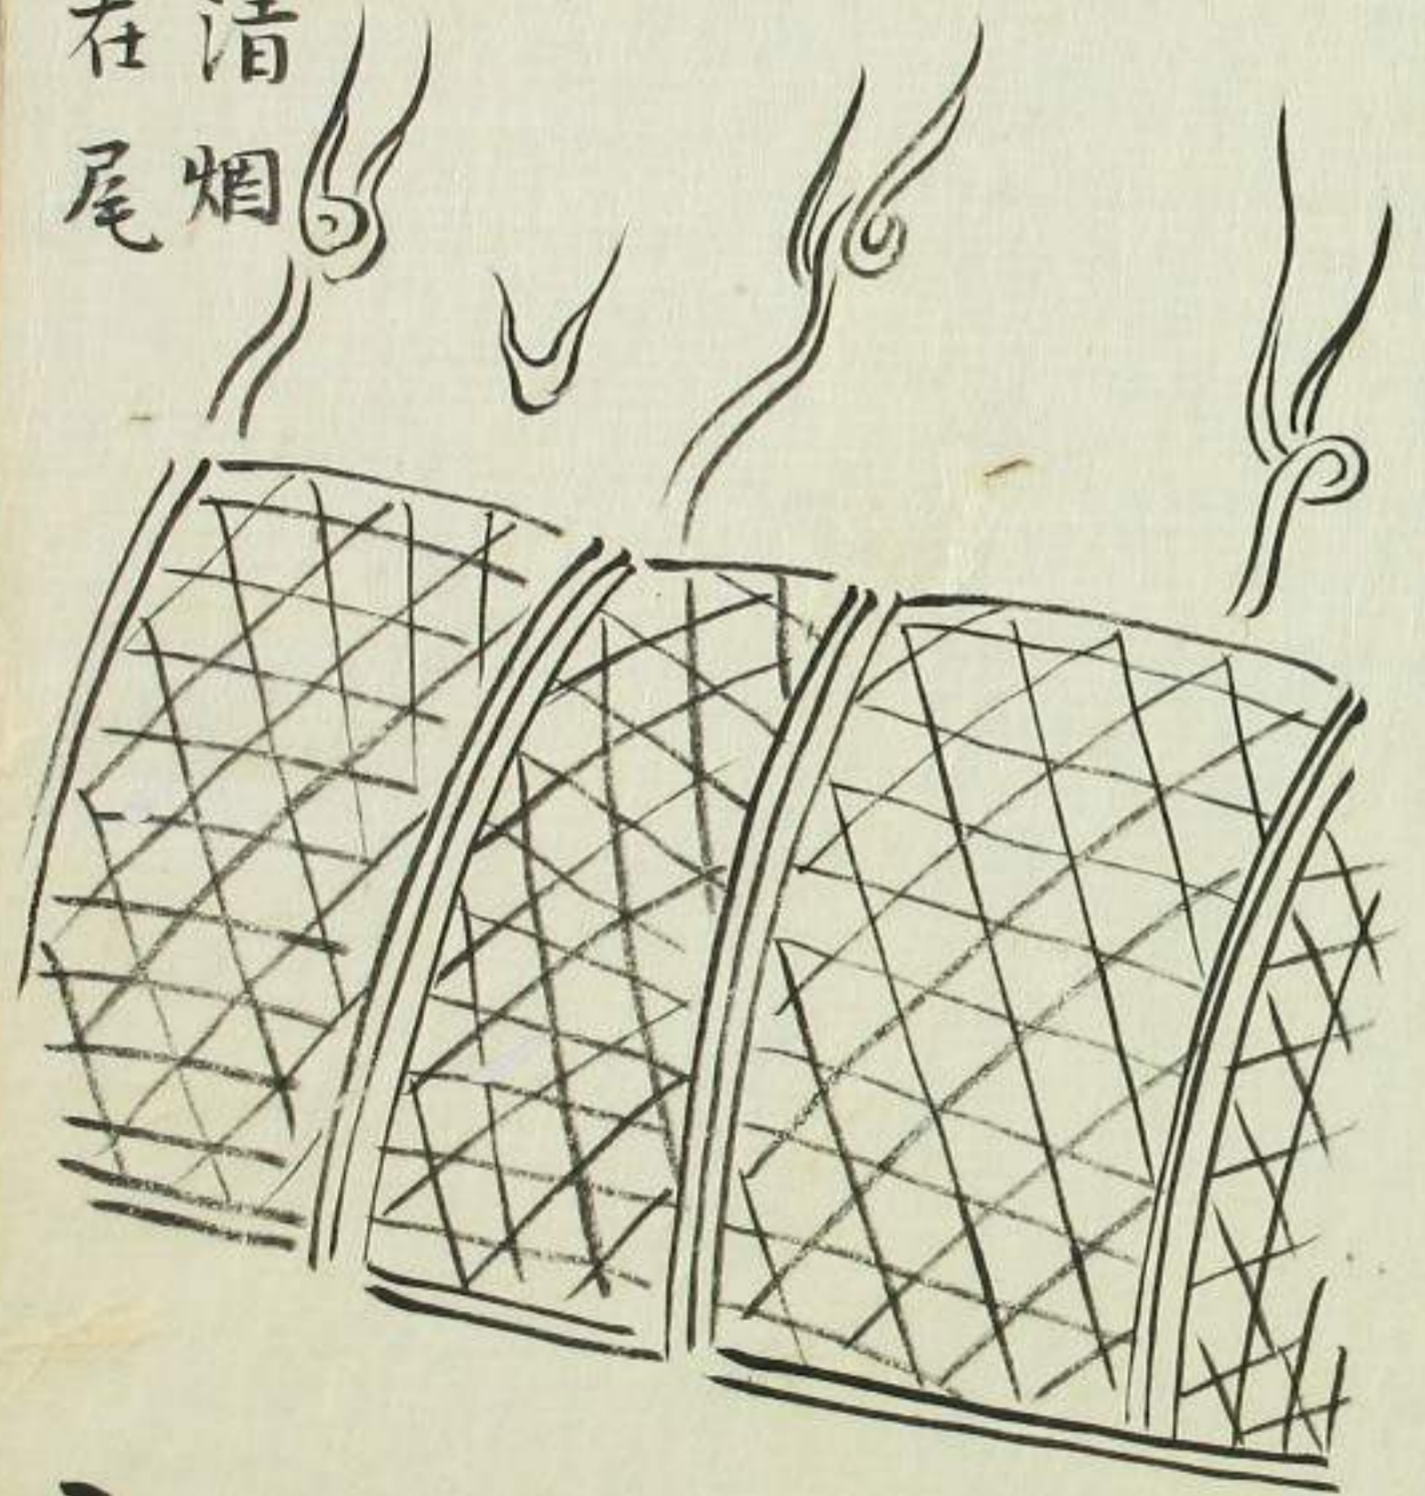 清烟
在尾